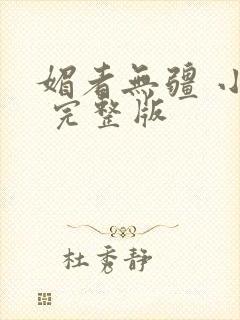 媚者無疆 小
完整版
杜秀静